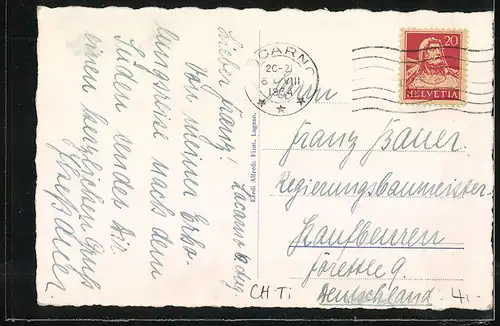 Lieber Franz! Locarno 6. Aug.
Von meiner Erho-
lungsreise nach dem
Süden sendet Dir
einen herzlichen Gruß
Eredi Alfredo Finzi, Lugano.
LOCARNO
20-21
VIII
HELVETIA
20
Herrn
Franz Bauer
Regierungsbaumeister
Kaufbeuren
Deutschland
CH Ti
4,-